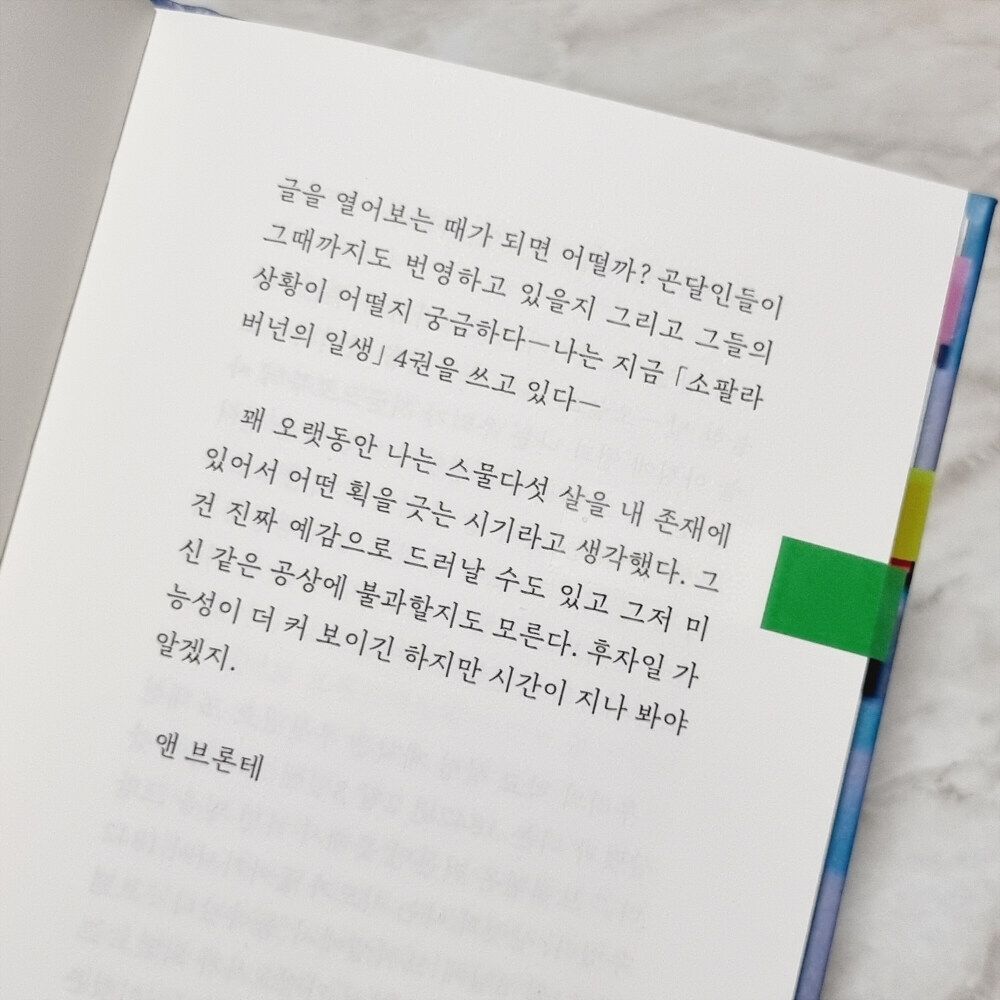 글을 열어보는 때가 되면 어떨까? 곤달인들이
그때까지도 번영하고 있을지 그리고 그들의
상황이 어떨지 궁금하다—나는 지금 「소팔라
버넌의 일생」 4권을 쓰고 있다—
꽤 오랫동안 나는 스물다섯 살을 내 존재에
있어서 어떤 획을 긋는 시기라고 생각했다. 그
건 진짜 예감으로 드러날 수도 있고 그저 미
신 같은 공상에 불과할지도 모른다. 후자일 가
능성이 더 커 보이긴 하지만 시간이 지나 봐야
알겠지.
앤 브론테